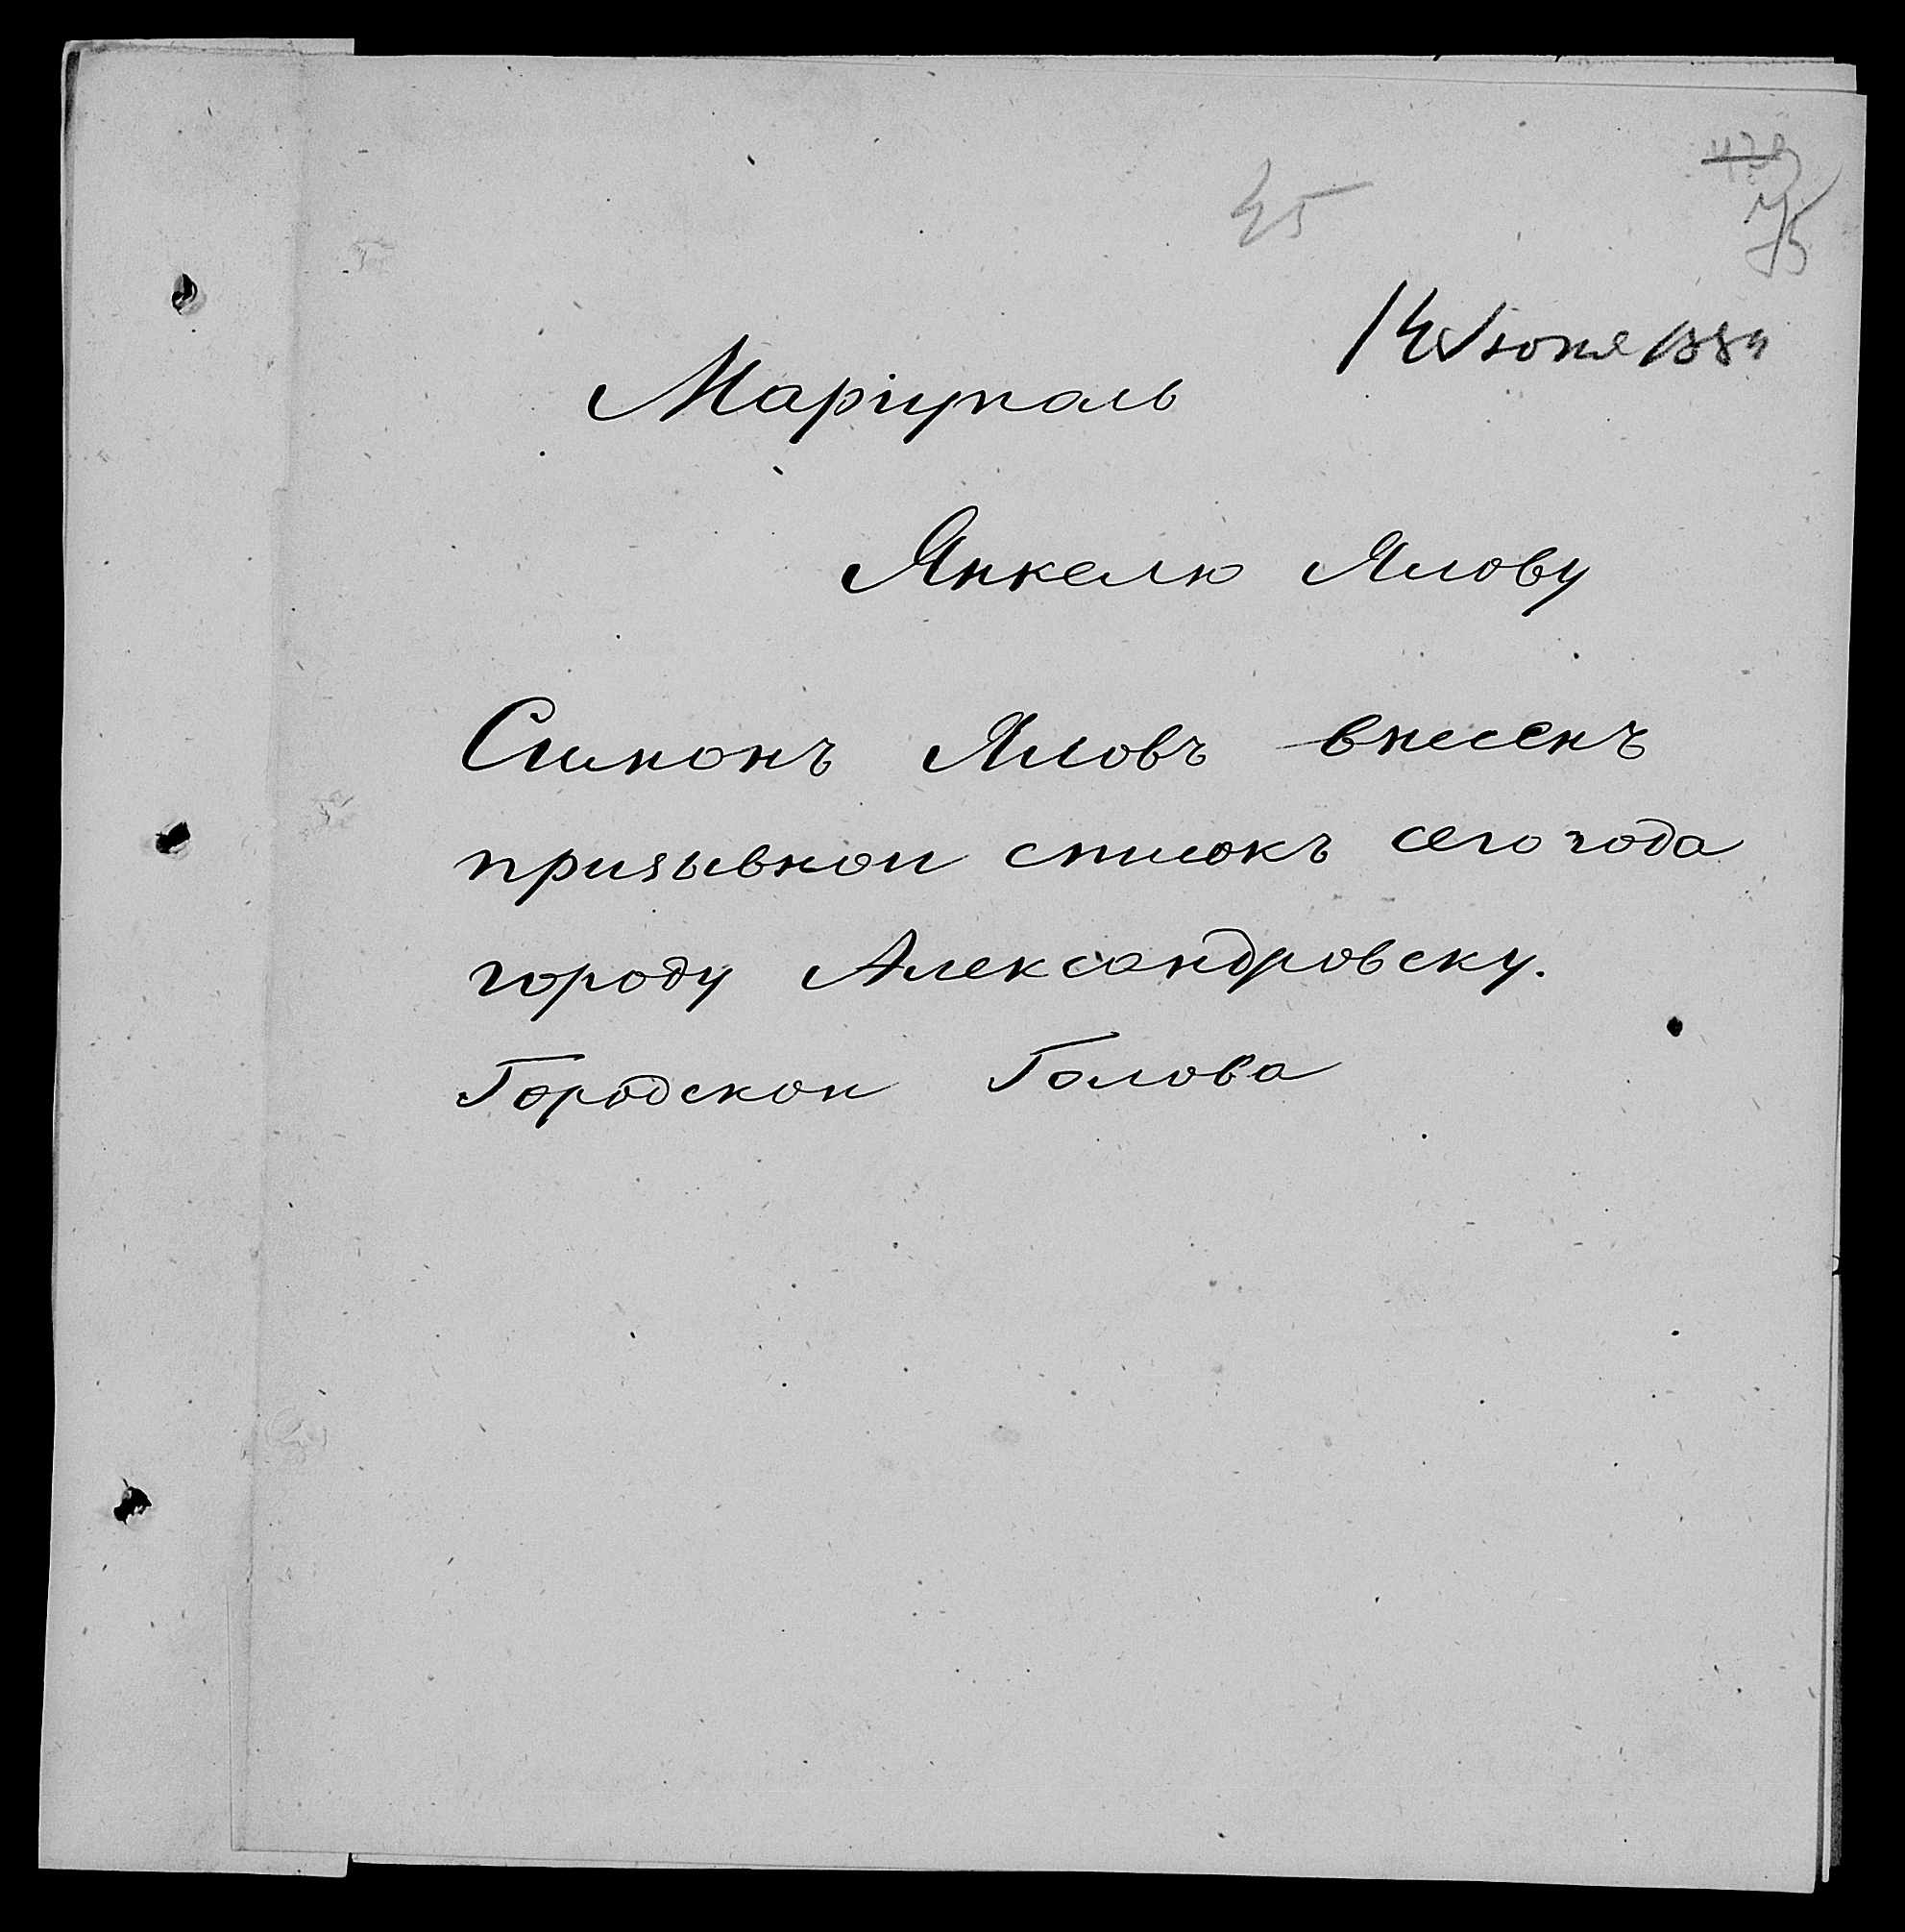 45
75
14 Іюня 188
Маріуполь
Янкелю Ялову
Симонъ Яловъ внесенъ
призывной списокъ сего года
городу Александровску.
Городской Голова